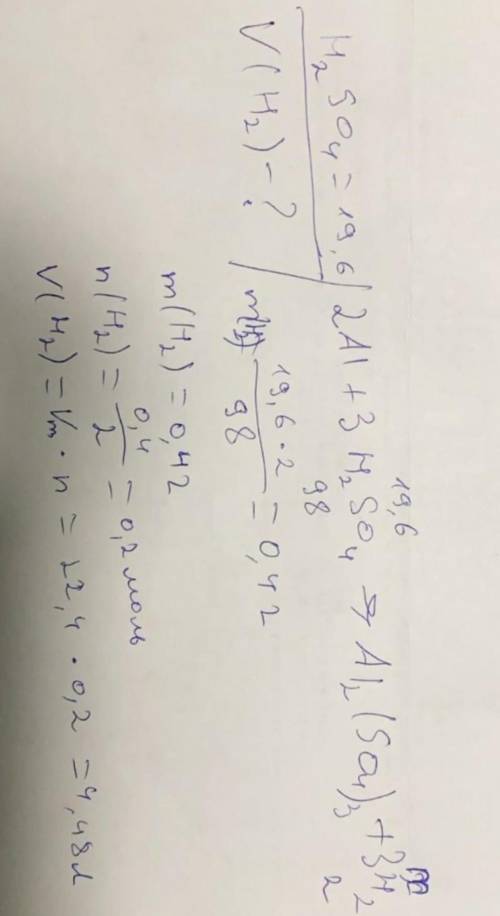 19,6 m
H₂SO₄ = 19,6 | 2Al + 3H₂SO₄ → Al₂(SO₄)₃ + 3H₂
98 2
V(H₂) - ? 19,6 · 2 / 98 = 0,4г
m(H₂) = 0,4г
n(H₂) = 0,4 / 2 = 0,2 моль
V(H₂) = Vm · n = 22,4 · 0,2 = 4,48л